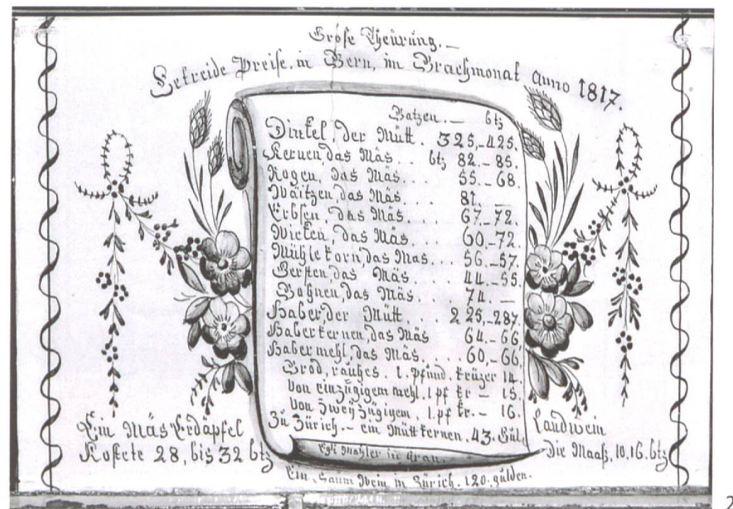 Große Theürung.—
Getreide Preise, in Bern, im Brachmonat anno 1817.
Batzen.— btz
Dinkel, der Mütt. 325,-425.
Kernen, das Mäs... btz 82.-85.
Rogen, das Mäs... 55.-68.
Wäitzen, das Mäs... 81.—
Erbsen, das Mäs... 67.-72.
Wicken, das Mäs... 60.-72.
Mühlekorn, das Mas... 56.-57.
Gersten, das Mäs... 44.-55.
Bohnen, das Mäs... 74.—
Haber, der Mütt. 225,-287.
Haberkernen, das Mäs 64-66
Habermehl, das Mäs... 60,-66.
Bröd, rauhes. 1. pfund. krüzer 14.
Von einzügigem mehl. 1. pf kr— 15.
Von zweÿzügigem, 1. pf kr.— 16.
Zu Zürich— ein Mütt kernen, 43. Gül.
Ein Mäs Erdäpfel
Kostete 28, bis 32 btz
Landwein
die Maaß, 10,16. btz
Mahler in
Ein, Saum Wein in Zürich. 120. gülden.
2